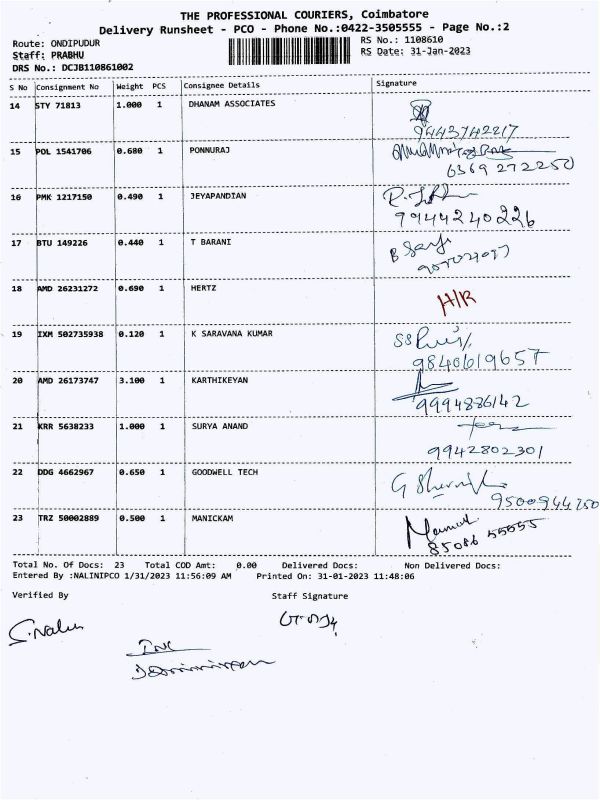 THE PROFESSIONAL COURIERS, Coimbatore
Delivery Runsheet - PCO - Phone No.:0422-3505555 - Page No.:2
Route: ONDIPUDUR
RS No.: 1108610
Staff: PRABHU
RS Date: 31-Jan-2023
DRS No.: DCJB110861002
S No Consignment No Weight PCS Consignee Details Signature
14 STY 71813 1.000 1 DHANAM ASSOCIATES
9443742217
15 POL 1541706 0.680 1 PONNURAJ
6369 272250
16 PMK 1217150 0.490 1 JEYAPANDIAN
9944240226
17 BTU 149226 0.440 1 T BARANI
18 AMD 26231272 0.690 1 HERTZ
H/R
19 IXM 502735938 0.120 1 K SARAVANA KUMAR
9840619657
20 AMD 26173747 3.100 1 KARTHIKEYAN
9994886142
21 KRR 5638233 1.000 1 SURYA ANAND
9942802301
22 DDG 4662967 0.650 1 GOODWELL TECH
9500944750
23 TRZ 50002889 0.500 1 MANICKAM
85086 55555
Total No. Of Docs: 23 Total COD Amt: 0.00 Delivered Docs: Non Delivered Docs:
Entered By :NALINIPCO 1/31/2023 11:56:09 AM Printed On: 31-01-2023 11:48:06
Verified By Staff Signature